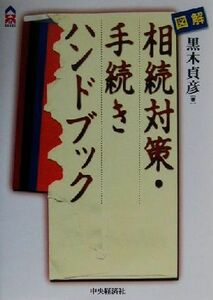 図解
相続対策・
手続き
ハンドブック
黒木貞彦
著
中央経済社